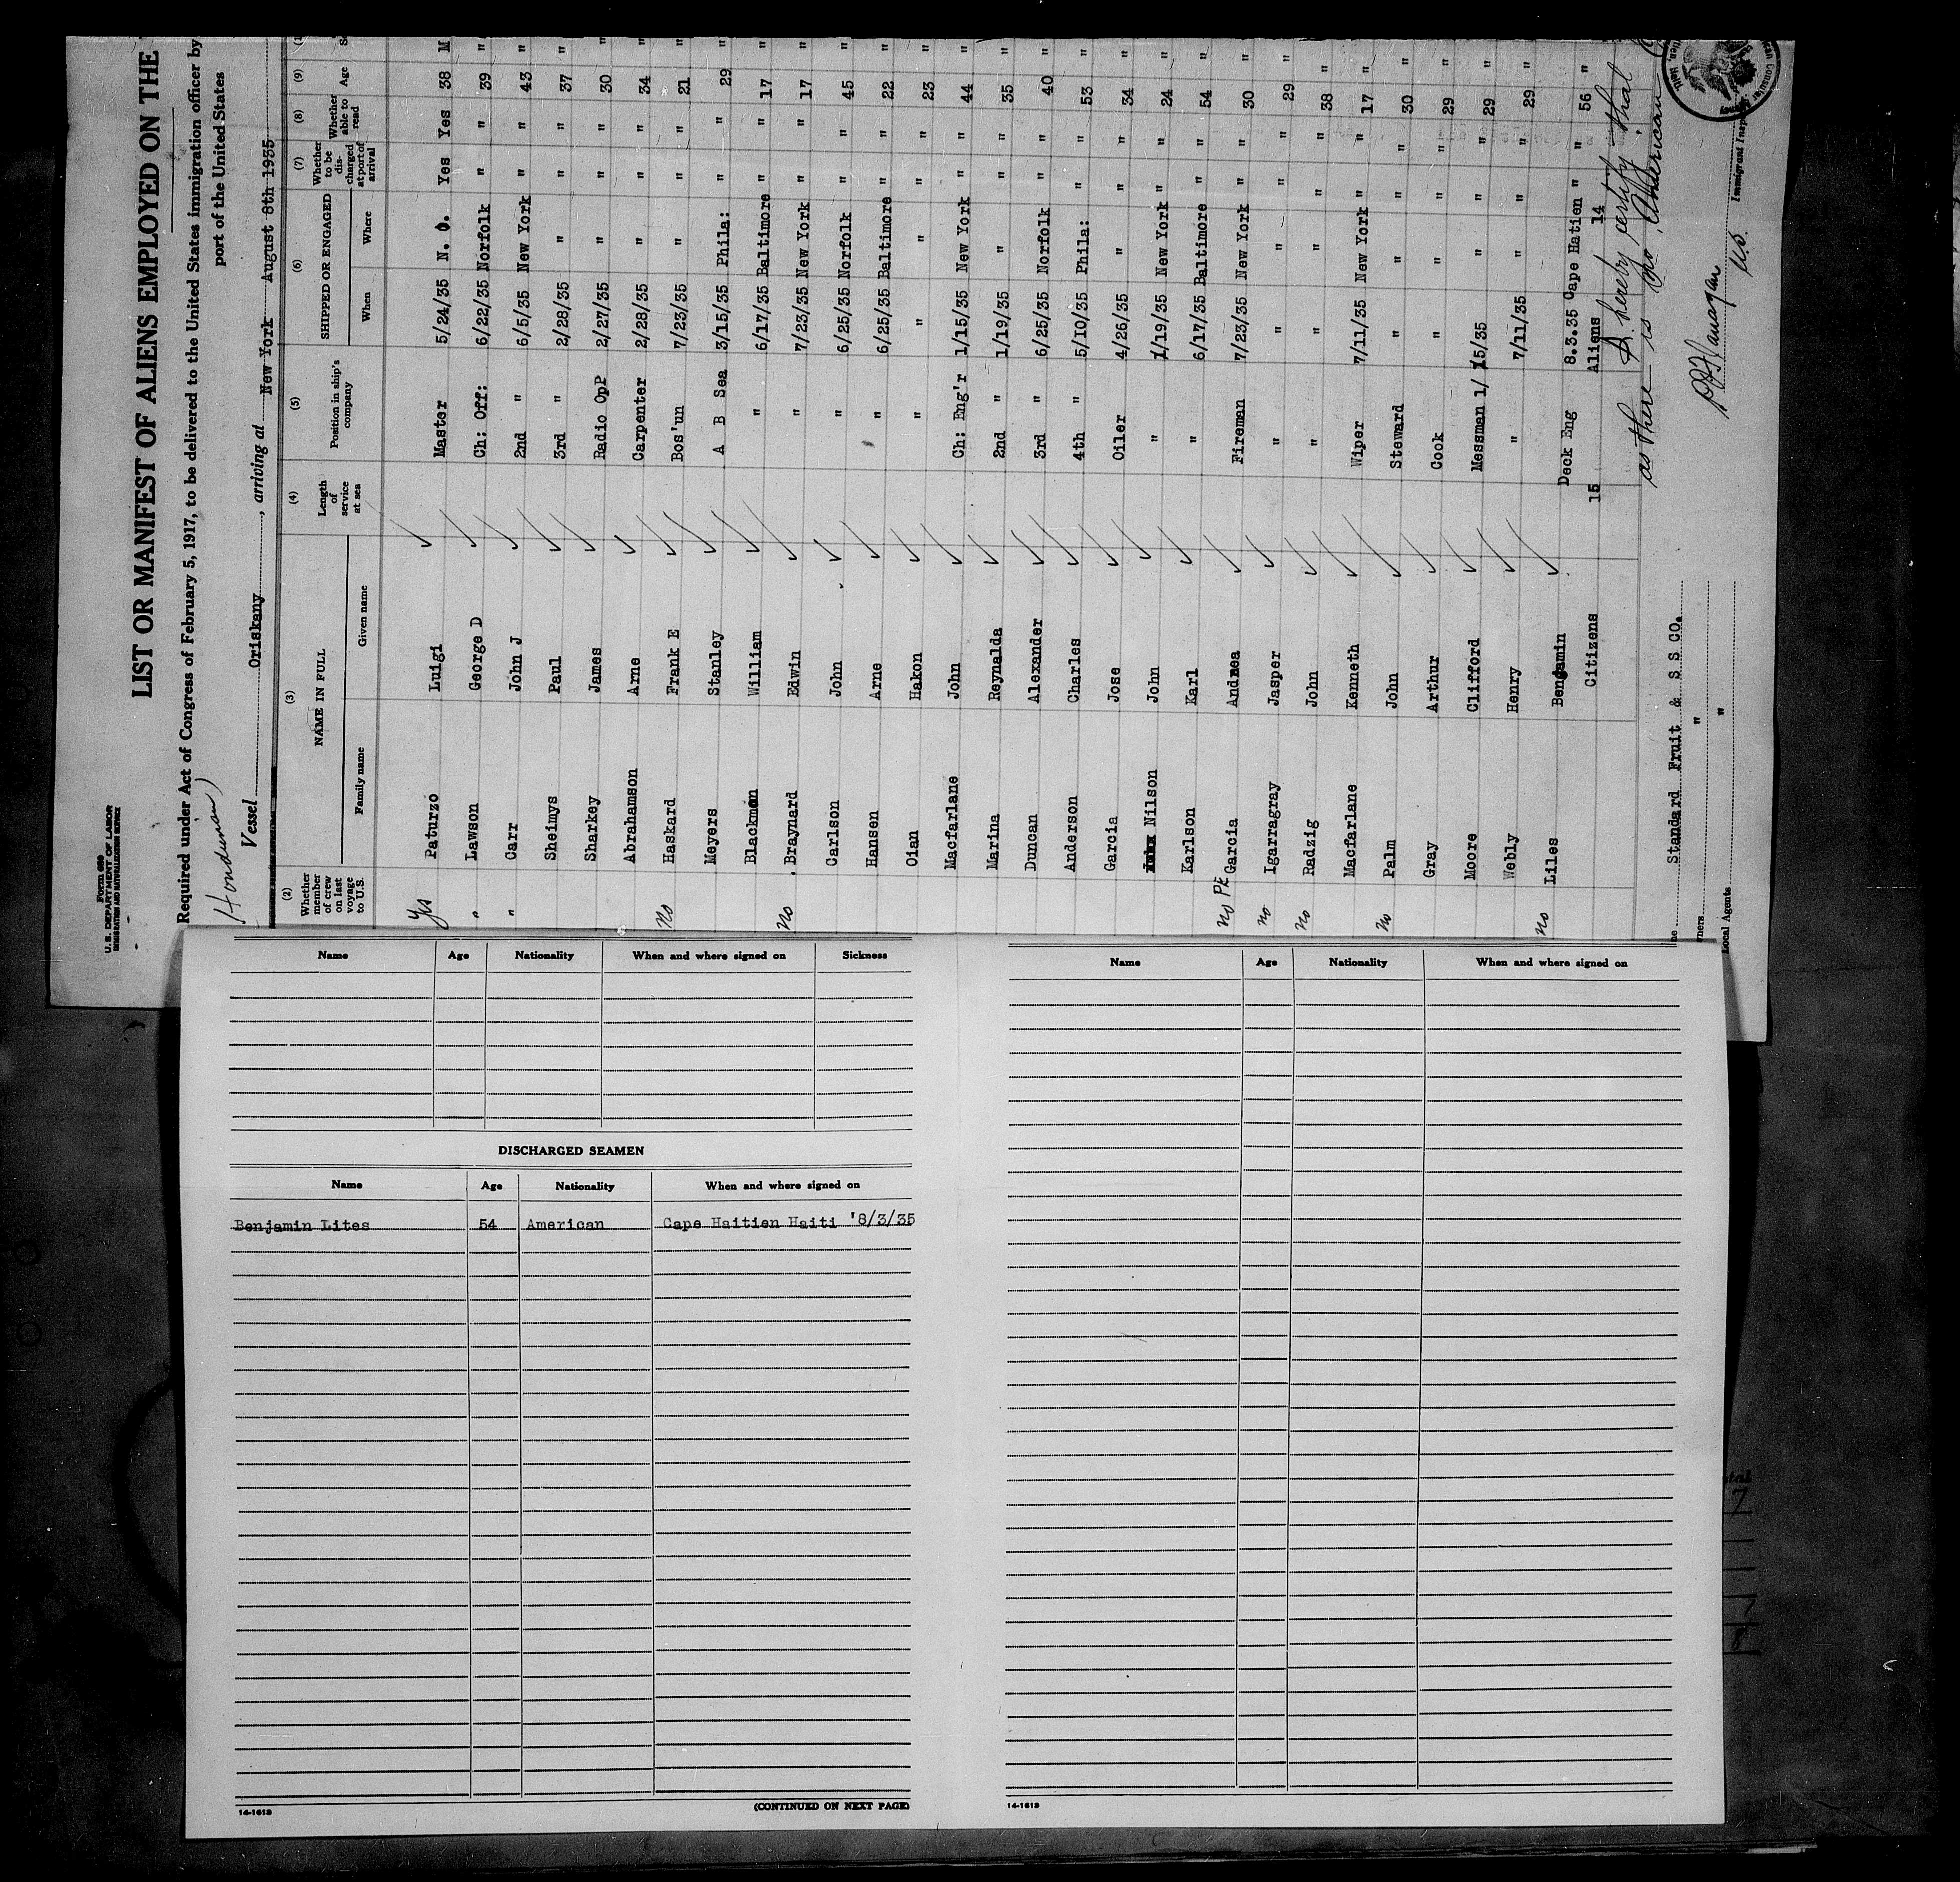 Form 689
U. S. DEPARTMENT OF LABOR
IMMIGRATION AND NATURALIZATION SERVICE
LIST OR MANIFEST OF ALIENS EMPLOYED ON THE
Required under Act of Congress of February 5, 1917, to be delivered to the United States immigration officer by
port of the United States
(Honduran)
Vessel Oriskany, arriving at New York August 8th 1935
(2) (3) (4) (5) (6) (7) (8) (9)
Whether member of crew on last voyage to U.S. NAME IN FULL Family name Given name Length of service at sea Position in ship's company SHIPPED OR ENGAGED When Where Whether to be discharged at port of arrival Whether able to read Age
Yes Paturzo Luigi Master 5/24/35 N. O. Yes Yes 38 M
" Lawson George D Ch: Off: 6/22/35 Norfolk " " 39 "
" Carr John J 2nd " 6/5/35 New York " " 43 "
Sheimys Paul 3rd " 2/28/35 " " " 37 "
Sharkey James Radio OpP 2/27/35 " " " 30 "
Abrahamson Arne Carpenter 2/28/35 " " " 34 "
no Haskard Frank E Bos'un 7/23/35 " " " 21 "
Meyers Stanley A B Sea 3/15/35 Phila: " " 29 "
Blackmon William " 6/17/35 Baltimore " " 17 "
no Braynard Edwin " 7/23/35 New York " " 17 "
Carlson John " 6/25/35 Norfolk " " 45 "
Hansen Arne " 6/25/35 Baltimore " " 22 "
Oian Hakon " " " " " 23 "
Macfarlane John Ch: Eng'r 1/15/35 New York " " 44 "
Marina Reynalda 2nd " 1/19/35 " " " 35 "
Duncan Alexander 3rd " 6/25/35 Norfolk " " 40 "
Anderson Charles 4th " 5/10/35 Phila: " " 53 "
Garcia Jose Oiler 4/26/35 " " " 34 "
Nilson John " 1/19/35 New York " " 24 "
Karlson Karl " 6/17/35 Baltimore " " 54 "
no PE Garcia Andrea Fireman 7/23/35 New York " " 30 "
no Igarragray Jasper " " " " " 29 "
no Radzig John " " " " " 38 "
Macfarlane Kenneth Wiper 7/11/35 New York " " 17 "
no Palm John Steward " " " " 30 "
Gray Arthur Cook " " " " 29 "
Moore Clifford Messman 1/15/35 " " " 29 "
Webly Henry " 7/11/35 " " " 29 "
no Liles Benjamin Deck Eng 8.3.35 Cape Hatien " " 56 "
Citizens 15 Aliens 14
I hereby certify that
as there is no American
Standard Fruit & S S CO.
ners "
Local Agents "
Immigrant Insp
Name Age Nationality When and where signed on Sickness
DISCHARGED SEAMEN
Name Age Nationality When and where signed on
Benjamin Lites 54 American Cape Haitien Haiti '8/3/35
14-1613 (CONTINUED ON NEXT PAGE)
Name Age Nationality When and where signed on
14-1613